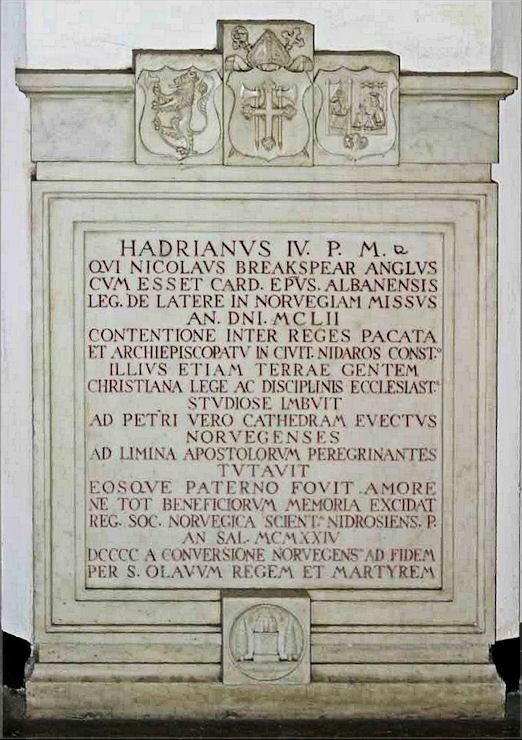 HADRIANVS IV. P. M.
QVI NICOLAVS BREAKSPEAR ANGLVS
CVM ESSET CARD. EPVS. ALBANENSIS
LEG. DE LATERE IN NORVEGIAM MISSVS
AN. DNI. MCLII
CONTENTIONE INTER REGES PACATA
ET ARCHIEPISCOPATV IN CIVIT. NIDAROS CONST.
ILLIVS ETIAM TERRAE GENTEM
CHRISTIANA LEGE AC DISCIPLINIS ECCLESIAST.
STVDIOSE IMBVIT
AD PETRI VERO CATHEDRAM EVECTVS
NORVEGENSES
AD LIMINA APOSTOLORVM PEREGRINANTES
TVTAVIT
EOSQVE PATERNO FOVIT AMORE
NE TOT BENEFICIORVM MEMORIA EXCIDAT
REG. SOC. NORVEGICA SCIENT. NIDROSIENS. P.
AN SAL. MCMXXIV
DCCCC A CONVERSIONE NORVEGENS. AD FIDEM
PER S. OLAVVM REGEM ET MARTYREM